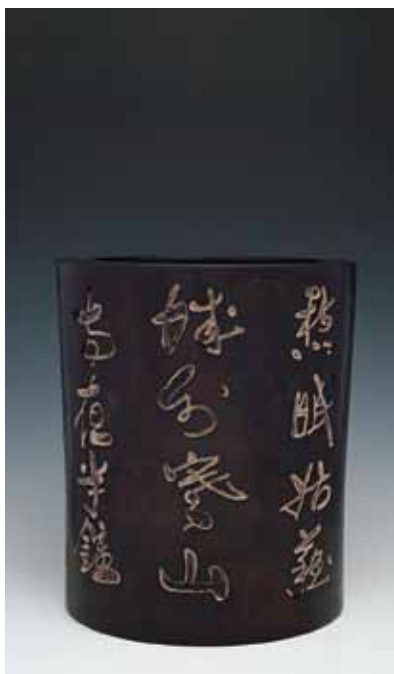 愁眠姑蘇
城外寒山
寺夜半鐘